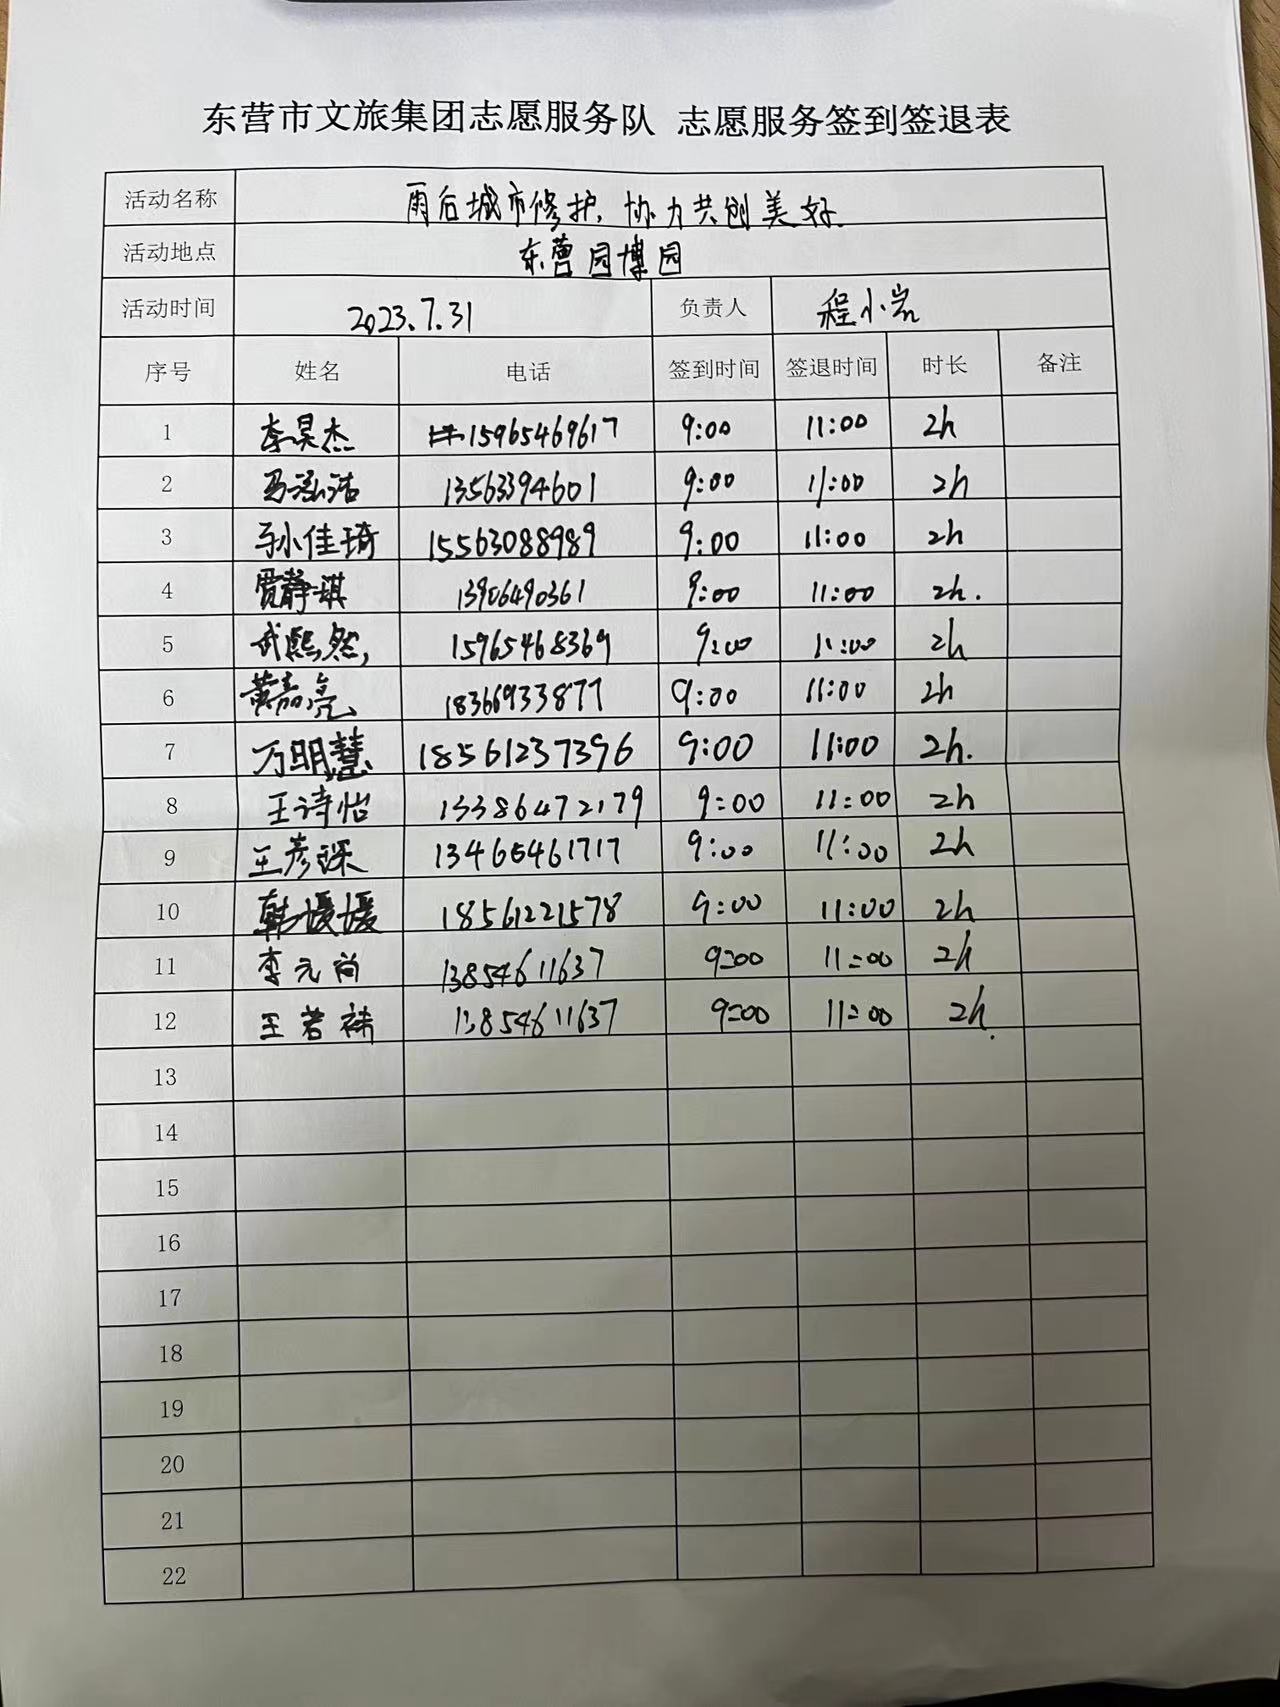 东营市文旅集团志愿服务队 志愿服务签到签退表
活动名称 雨后城市修护,协力共创美好.
活动地点 东营园博园
活动时间 2023.7.31 负责人 程小岩
序号 姓名 电话 签到时间 签退时间 时长 备注
1 李昊杰 15965469617 9:00 11:00 2h
2 冯泓洁 13563394601 9:00 11:00 2h
3 孙佳琦 15563088989 9:00 11:00 2h
4 贾静琪 13906490361 9:00 11:00 2h.
5 武熙然, 15965468369 9:00 11:00 2h
6 黄嘉亮 18366933877 9:00 11:00 2h
7 万明慧 18561237396 9:00 11:00 2h.
8 王诗怡 13386472179 9:00 11:00 2h
9 王彦琛 13465461717 9:00 11:00 2h
10 韩媛媛 18561221578 9:00 11:00 2h
11 李元尚 13854611637 9:00 11:00 2h
12 王若 13854611637 9:00 11:00 2h.
13
14
15
16
17
18
19
20
21
22